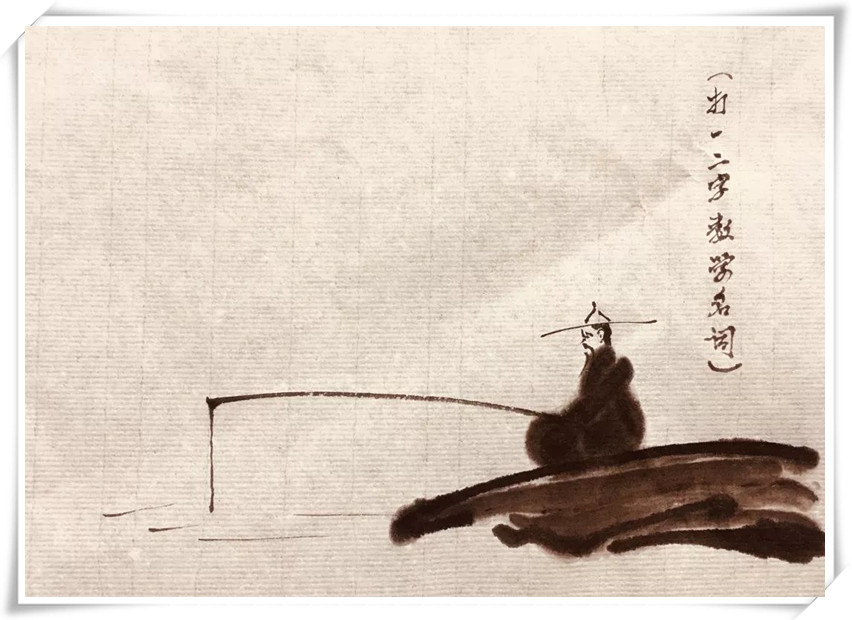 （打一二字数学名词）